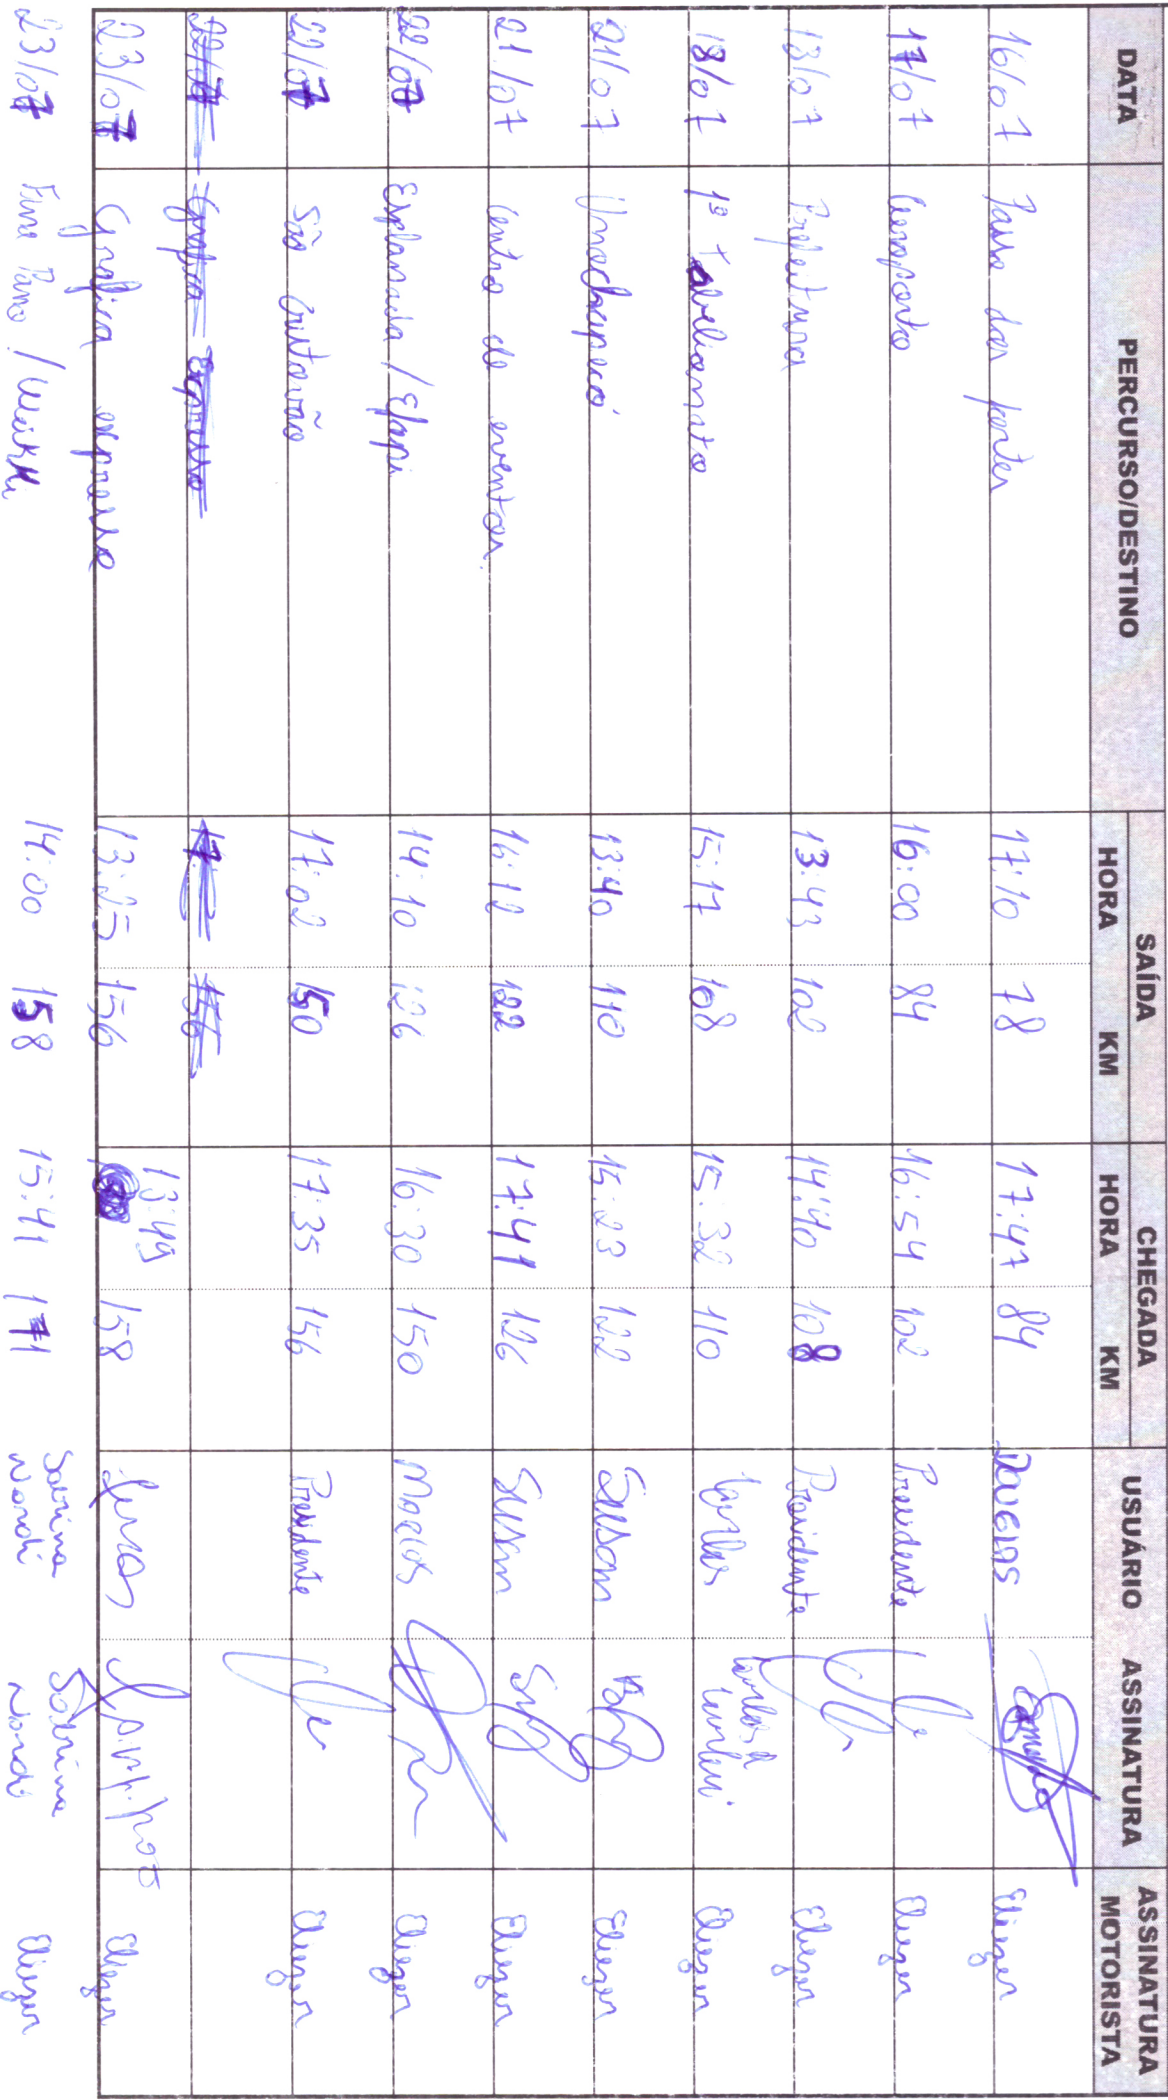 DATA PERCURSO/DESTINO SAÍDA CHEGADA USUÁRIO ASSINATURA ASSINATURA MOTORISTA
HORA KM HORA KM
16/07 Passo dos fortes 17:10 78 17:47 84 DOUGLAS Eliezer
17/07 Aeroporto 16:00 84 16:54 102 Presidente Eliezer
18/07 Prefeitura 13:43 102 14:40 108 Presidente Eliezer
18/07 1º Tabelionato 15:17 108 15:32 110 Carlos Eliezer
21/07 Unochapecó 13:40 110 15:23 122 Susan Eliezer
21/07 Centro de eventos. 16:12 122 17:41 126 Susan Eliezer
22/07 Esplanada / Efapi 14:10 126 16:30 150 Marcos Eliezer
22/07 São Cristovão 17:02 150 17:35 156 Presidente Eliezer
22/07 Grafica Expresso 17: 156
23/07 Grafica expressa 13:25 156 13:49 158 Eliezer
23/07 14:00 158 15:41 171 Sabrina Nardi Sabrina Nardi Eliezer